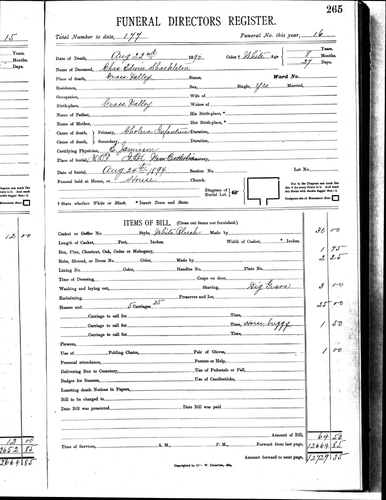 265
FUNERAL DIRECTORS REGISTER.
Total Number to date, 177 Funeral No. this year, 16
Date of Death, Aug 22nd 189 Color † White Age 8 Months 27 Days
Name of Deceased, Chas Edwin Shackleton
Place of Death, Grass Valley Street. Ward No.
Residence, Sex, Single, Yes Married,
Occupation, Wife of
Birth-place, Grass Valley Widow of
Name of Father, His Birth-place, *
Name of Mother, Her Birth-place, *
Cause of death, Primary, Cholera Infantum Duration,
Cause of death, Secondary, Duration,
Certifying Physician, E. Jamison
Place of burial, Cemetery,
Date of burial, Aug 24th 1894 Section No. Lot No.
Funeral held at Home, or House Church. Diagram of Burial Lot
† State whether White or Black. * Insert Town and State.
ITEMS OF BILL. (Cross out items not furnished.)
Casket or Coffin No. Style, White Plush Made by 30 00
Length of Casket, Feet, Inches. Width of Casket, * Inches.
Box, Pine, Chestnut, Oak, Cedar or Mahogany, 1 75
Robe, Shroud, or Dress No. Color, Made by 2 25
Lining No. Color, Handles No. Plate No.
Time of Dressing, Crape on door,
Washing and laying out, Shaving, Dig Grave 3 00
Embalming, Preserver and Ice,
Hearse and 5 Carriages 25 25 00
Carriage to call for Time of
Carriage to call for Time of Horse buggy 1 50
Carriage to call for Time of
Flowers,
Use of Folding Chairs, Pair of Gloves, 1 00
Personal attendance, Porters or Help,
Delivering Box to Cemetery, Use of Pedestals or Pall,
Badges for Bearers, Use of Candlesticks,
Inserting death Notices in Papers,
Bill to be charged to
Date Bill was presented Date Bill was paid
Amount of Bill, 64 50
Time of Services, A. M., P. M. Forward from last page, 12664 85
Amount forward to next page, 12729 35